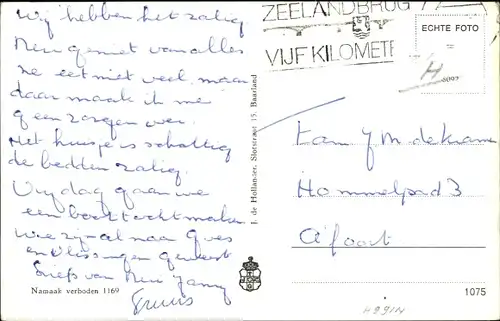 Wij hebben het zalig
Rini geniet van alles
ze eet niet veel, maar
daar maak ik me
geen zorgen over.
Het huisje is schattig
de bedden zalig.
Vrijdag gaan we
een boottocht maken
We zijn al naar Goes
en Vlissingen geweest
Liefs van Rini Janny
Truus
Namaak verboden 1169
J. de Hollander, Slotstraat 15, Baarland
ZEELANDBRUG
VIJF KILOMETE
ECHTE FOTO
H
Fam J M de
Hommelpad 3
A'foort
1075